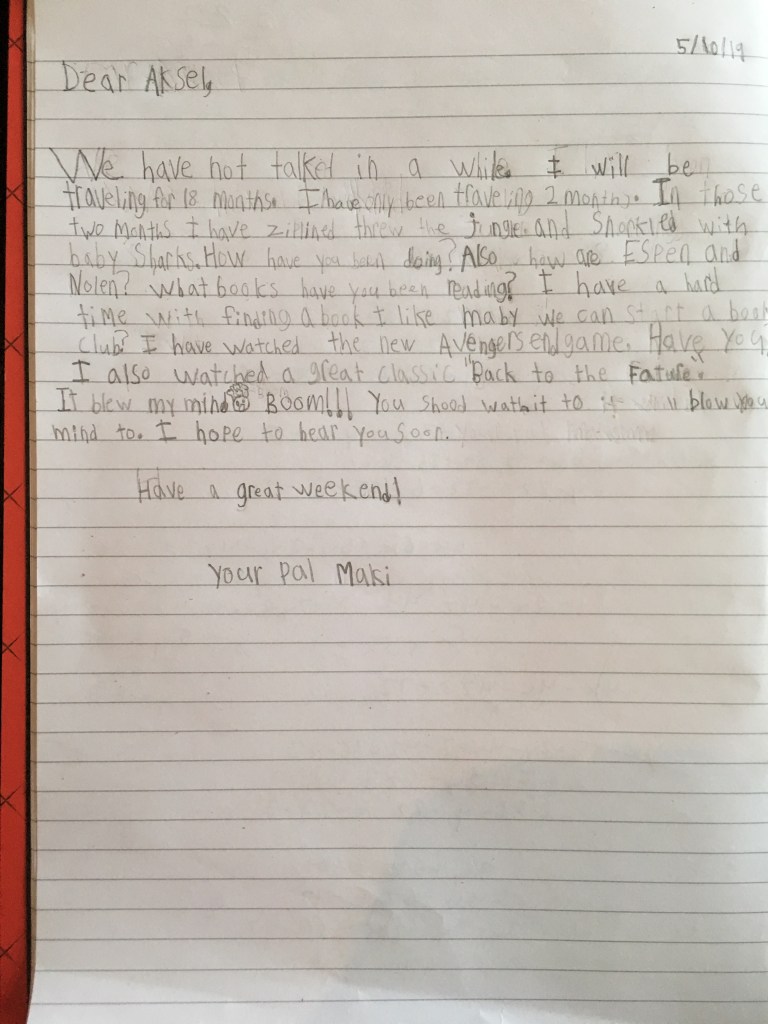 5/10/19
Dear Aksel,
We have not talket in a while. I will be
traveling for 18 months. I have only been traveling 2 months. In those
two months I have ziplined threw the jungle and Snorkled with
baby Sharks. How have you been doing? Also how are Espen and
Nolen? What books have you been reading? I have a hard
time with finding a book I like maby we can start a book
Club? I have watched the new Avengers endgame. Have you
I also watched a great classic "Back to the Fature".
It blew my mind BOOM!!! You shood wathit to it will blow you
mind to. I hope to hear you soon.
Have a great weekend!
Your Pal Maki